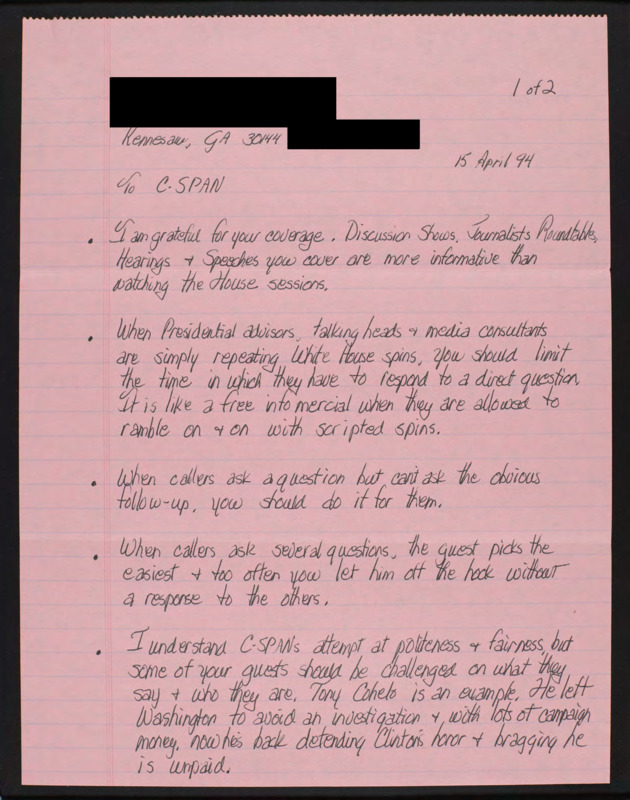 1 of 2
Kennesaw, GA 30144
15 April 94
c/o C-SPAN
• I am grateful for your coverage. Discussion Shows, Journalists Roundtables,
Hearings & Speeches you cover are more informative than
watching the House sessions.
• When Presidential advisors, talking heads & media consultants
are simply repeating White House spins, you should limit
the time in which they have to respond to a direct question.
It is like a free infomercial when they are allowed to
ramble on & on with scripted spins.
• When callers ask a question but can't ask the obvious
follow-up, you should do it for them.
• When callers ask several questions, the guest picks the
easiest & too often you let him off the hook without
a response to the others.
• I understand C-SPANs attempt at politeness & fairness, but
some of your guests should be challenged on what they
say & who they are. Tony Cohelo is an example. He left
Washington to avoid an investigation &, with lots of campaign
money, now he's back defending Clinton's honor & bragging he
is unpaid.